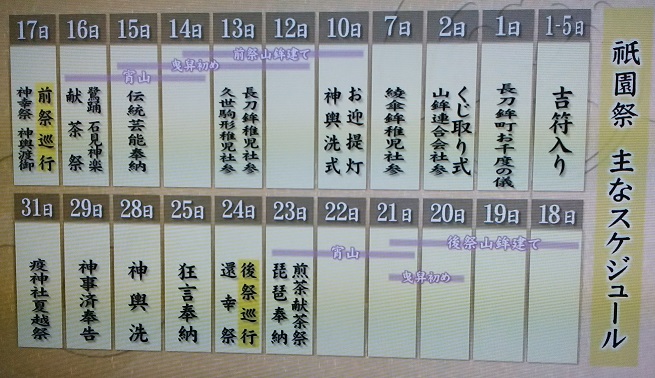 祇園祭 主なスケジュール
1-5日
吉符入り
1日
長刀鉾町お千度の儀
2日
くじ取り式
山鉾連合会社参
7日
綾傘鉾稚児社参
10日
お迎提灯
神輿洗式
12日
13日
長刀鉾稚児社参
久世駒形稚児社参
14日
15日
伝統芸能奉納
16日
鷺踊 石見神楽
献茶祭
17日
前祭巡行
神幸祭 神輿渡御
前祭山鉾建て
曳昇初め
宵山
18日
19日
20日
21日
22日
23日
煎茶献茶祭
琵琶奉納
24日
後祭巡行
還幸祭
25日
狂言奉納
28日
神輿洗
29日
神事済奉告
31日
疫神社夏越祭
後祭山鉾建て
曳昇初め
宵山